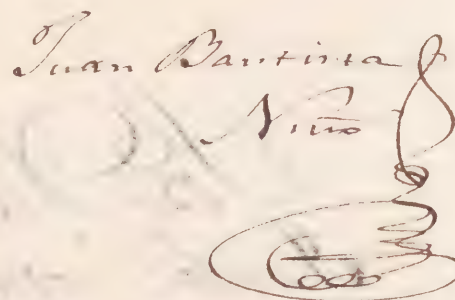 Juan Bautista
Niño